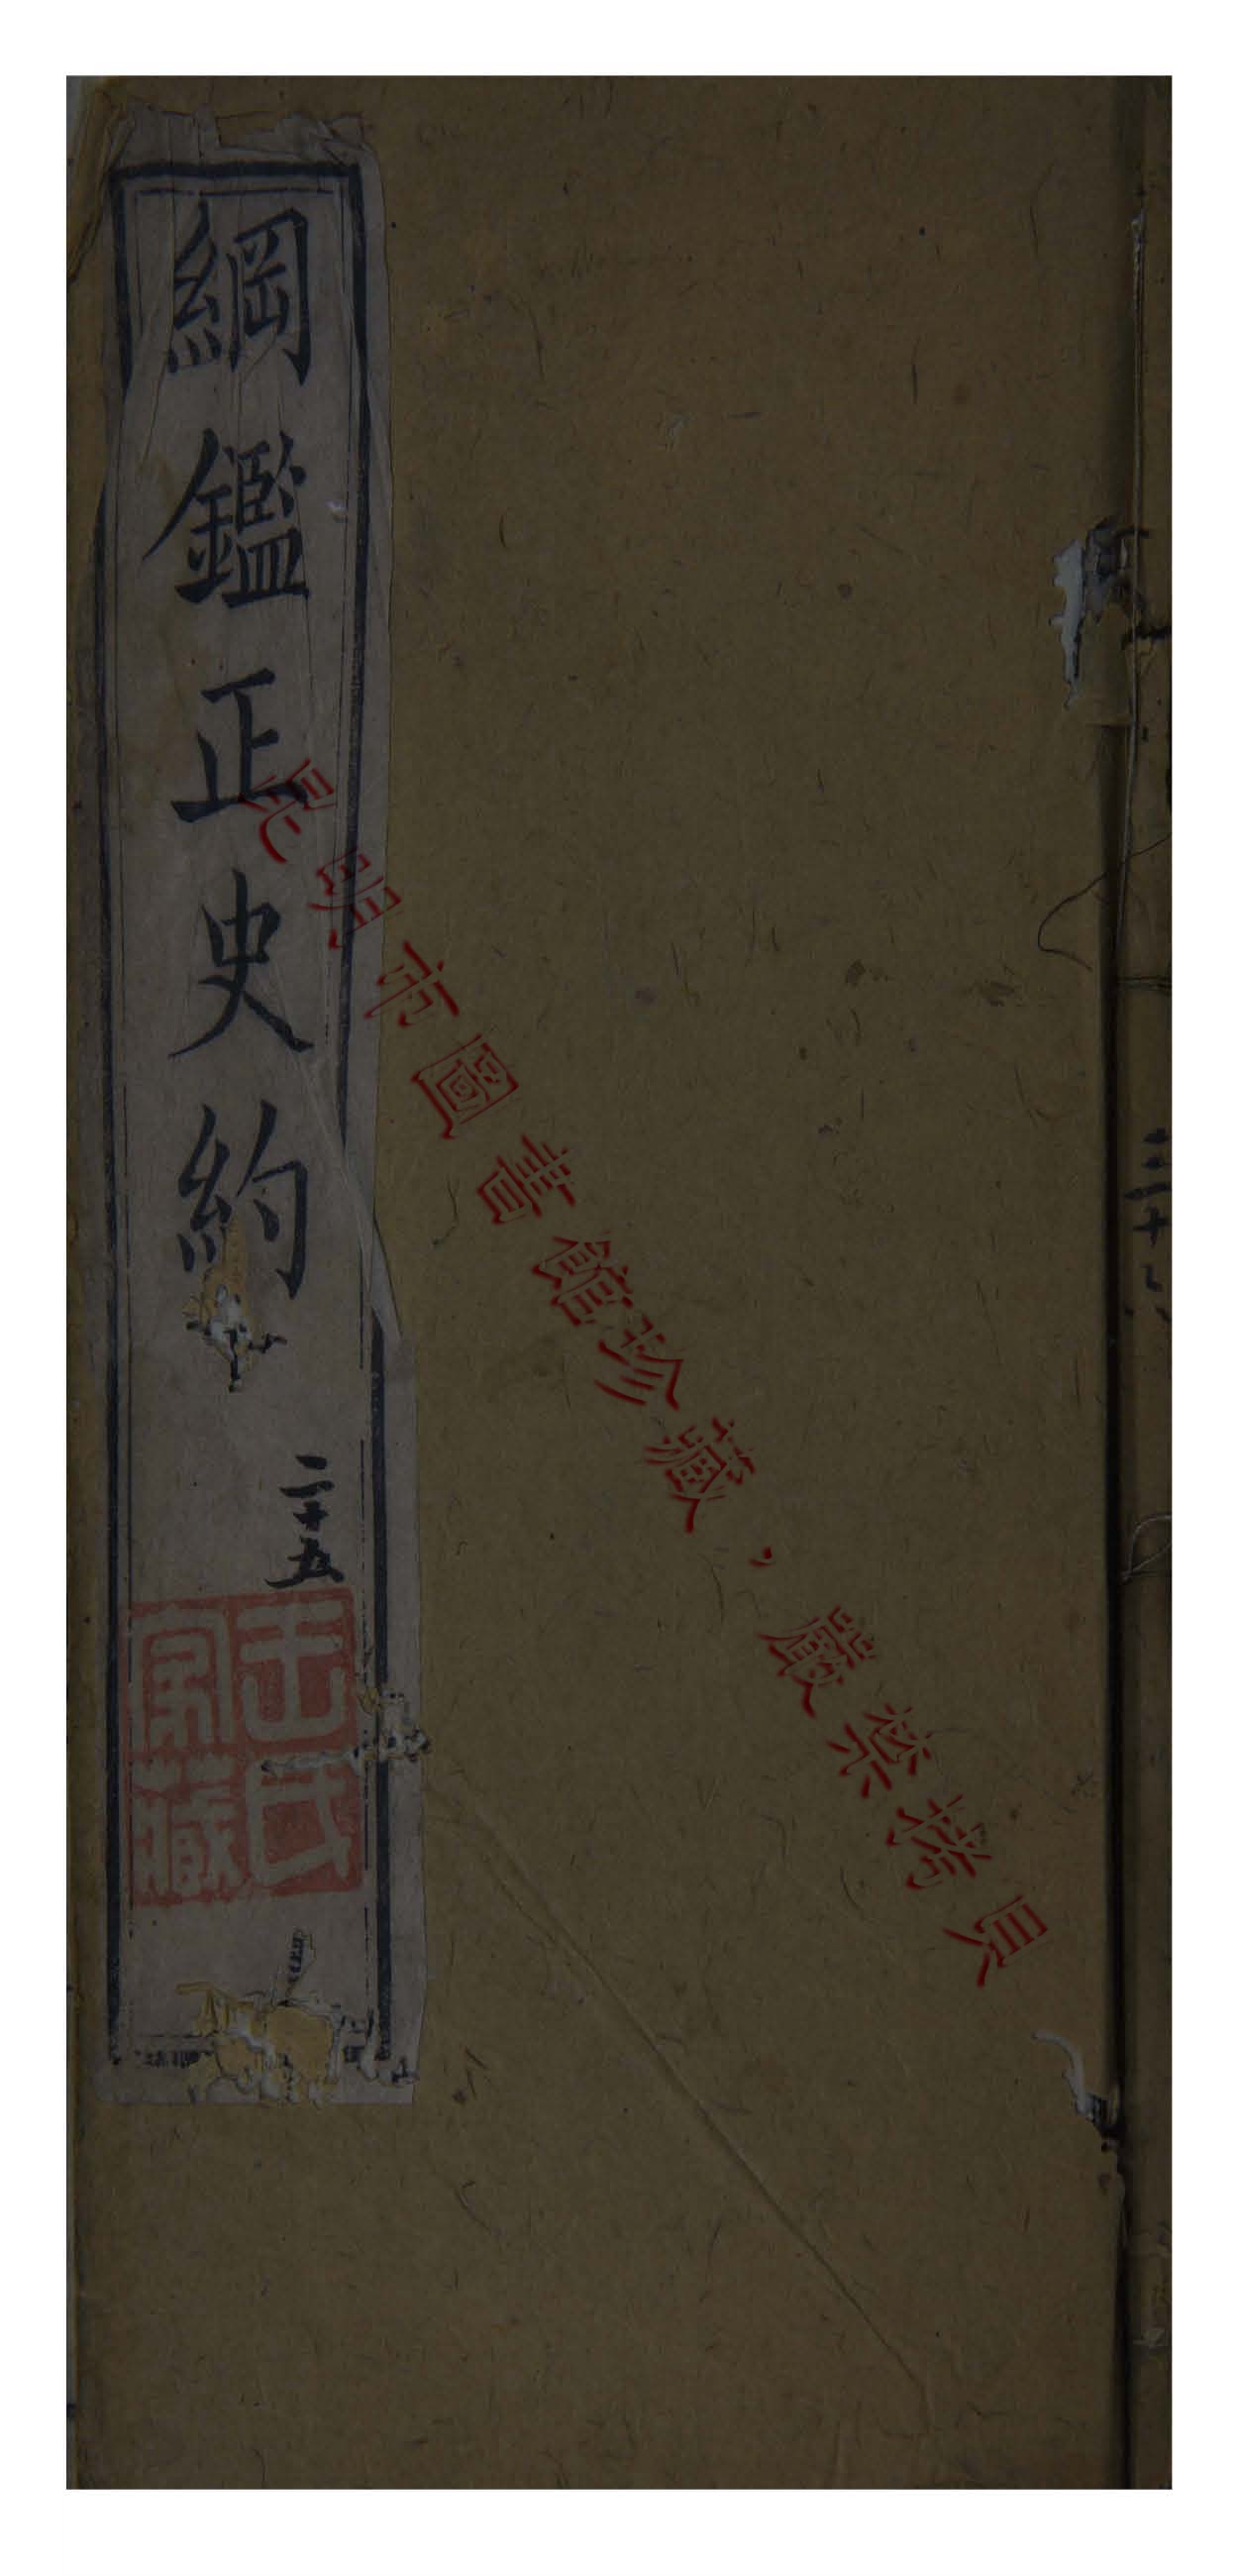 綱鑑正史約
二十五
王氏家藏
昆明市圖書館珍藏，嚴禁拷貝